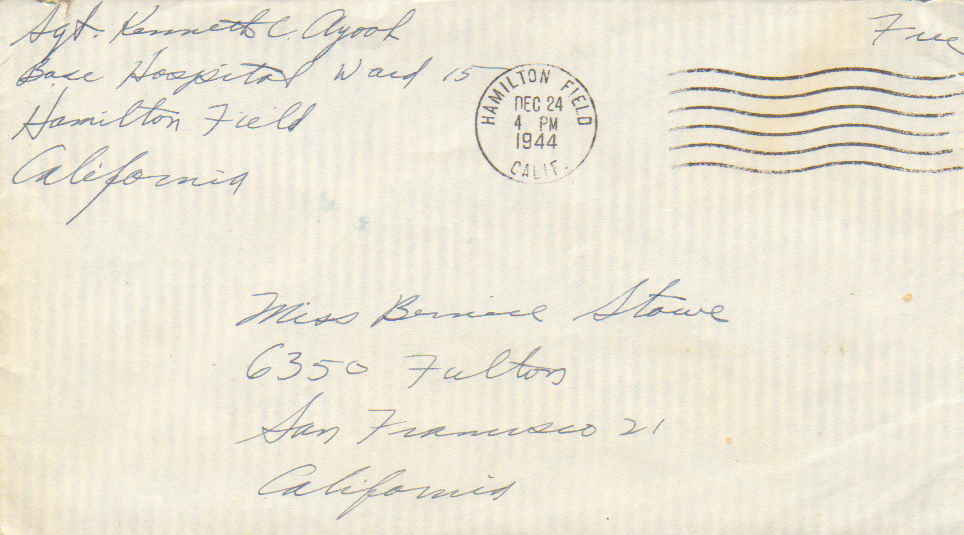 Sgt. Kenneth C. Ayoob
Free
Base Hospital Ward 15
Hamilton Field
California
HAMILTON FIELD
DEC 24
4 PM
1944
CALIF.
Miss Bernice Stowe
6350 Fulton
San Francisco 21
California